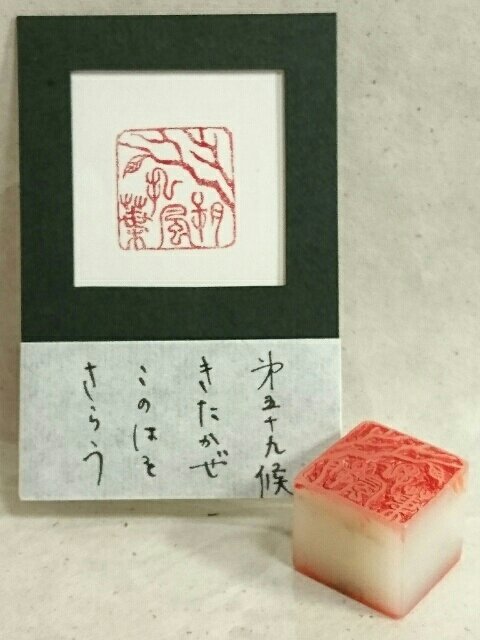 朔風払葉
第五十九候
きたかぜ
このはを
さらう